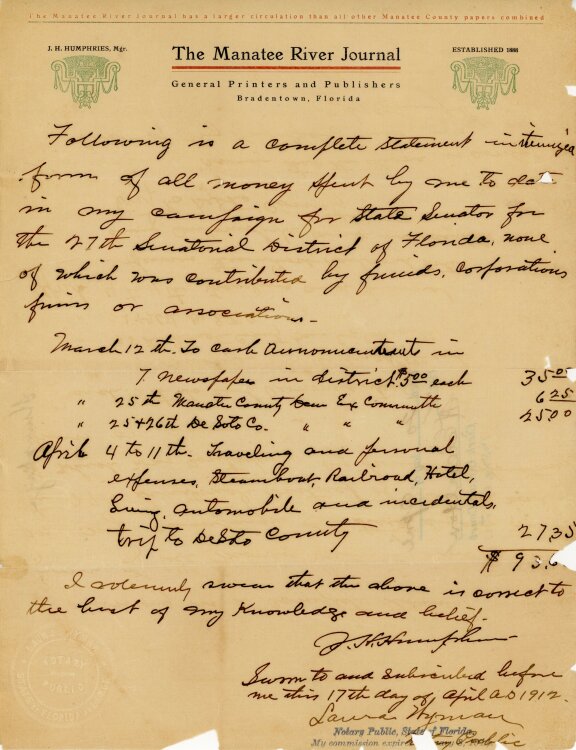 The Manatee River Journal has a larger circulation than all other Manatee County papers combined
J. H. HUMPHRIES, Mgr.
The Manatee River Journal
ESTABLISHED 1888
General Printers and Publishers
Bradentown, Florida
Following is a complete statement in itemized
form of all money spent by me to date
in my campaign for State Senator for
the 27th Senatorial District of Florida, none
of which was contributed by friends, corporations
firms or associations.
March 12th. To cash Announcements in
7 newspapers in district $5.00 each 35.00
" 25th Manatee County Dem Ex Committe 6.25
" 25+26th De Soto Co. " " " 25.00
April 4 to 11th. Traveling and personal
expenses, Steamboat, Railroad, Hotel,
Living, automobile and incidentals,
trip to DeSoto County 27.35
$ 93.6
I solemnly swear that the above is correct to
the best of my Knowledge and belief.
J. H. Humphries
Sworn to and subscribed before
me this 17th day of April A.D 1912.
Laura Wyman
Notary Public, State of Florida
Public
My commission expires